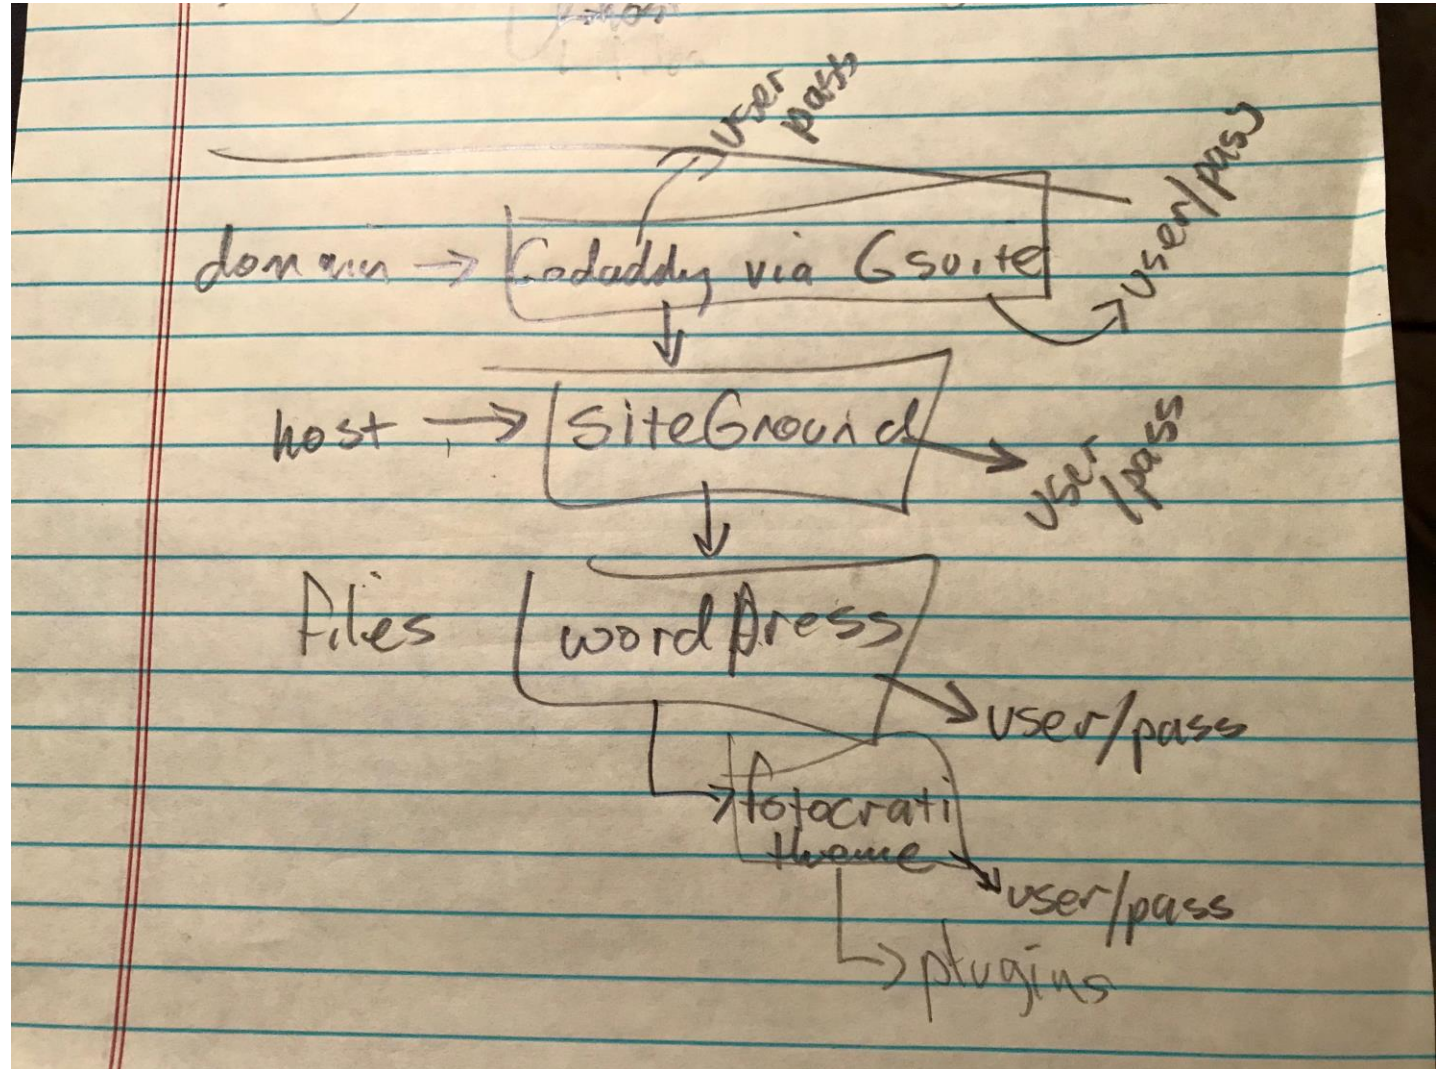 user
pass
user/pass
domain → Godaddy via Gsuite
host → SiteGround
user
/pass
files wordPress
user/pass
fotocrati
theme
user/pass
plugins